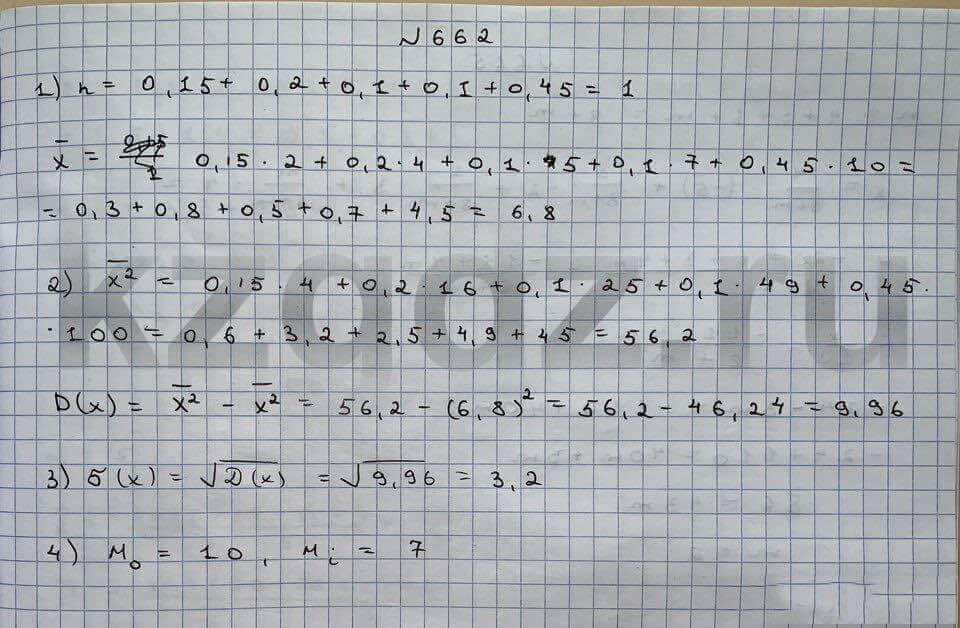 № 662
1) n = 0,15 + 0,2 + 0,1 + 0,1 + 0,45 = 1
x̅ = 0,15 · 2 + 0,2 · 4 + 0,1 · 5 + 0,1 · 7 + 0,45 · 10 =
= 0,3 + 0,8 + 0,5 + 0,7 + 4,5 = 6,8
2) x̅² = 0,15 · 4 + 0,2 · 16 + 0,1 · 25 + 0,1 · 49 + 0,45 ·
· 100 = 0,6 + 3,2 + 2,5 + 4,9 + 45 = 56,2
D(x) = x̅² - x̅² = 56,2 - (6,8)² = 56,2 - 46,24 = 9,96
3) б(x) = √D(x) = √9,96 = 3,2
4) M₀ = 10, Mi = 7
kzgdz.ru